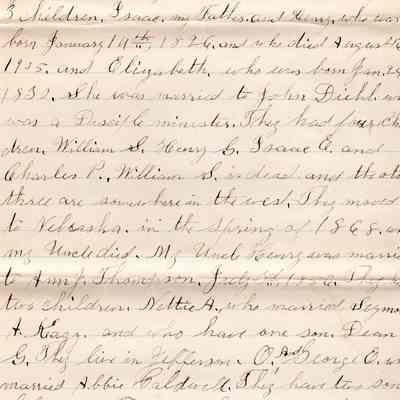 3 Children. Isaac, my Father. and Henry, who was
born January 14th, 1826. and who died August
1905. and Elizabeth, who was born Jan. 29
1832. She was married to John Diehl. w
was a Deciple minister. They had four Ch
dren. William S. Henry C. Isaac E. and
Charles P., William S. is dead. and the oth
three are somewhere in the west. They moved
to Nebraska. in the spring of 1868. w
my Uncle died. My Uncl Henry was marri
to Ann J. Thompson, July 1856. They h
two children. Nettie A., who married Seymo
A. and who have one son. Dean
G. They live in Jefferson. O. And George E. w
married Abbie Caldwell. They have two son